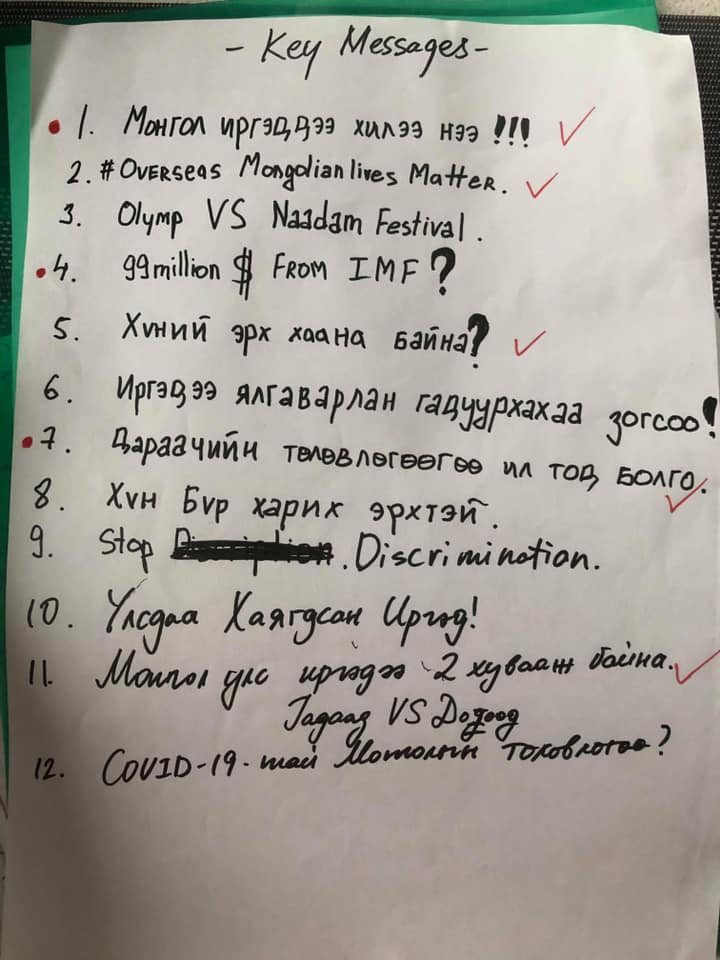 - Key Messages -
1. Монгол иргэддээ хилээ нээ !!!
2. #Overseas Mongolian lives Matter.
3. Olymp VS Naadam Festival.
4. 99 million $ From IMF?
5. Хүний эрх хаана байна?
6. Иргэдээ ялгаварлан гадуурхахаа зогсоо!
7. Дараачийн төлөвлөгөөгөө ил тод болго.
8. Хүн Бүр харих эрхтэй.
9. Stop . Discrimination.
10. Улсдаа Хаягдсан Иргэд!
11. Монгол улс иргэдээ 2 хувааж байна.
Гадаад VS Дотоод
12. COVID-19-тай төлөвлөгөө?